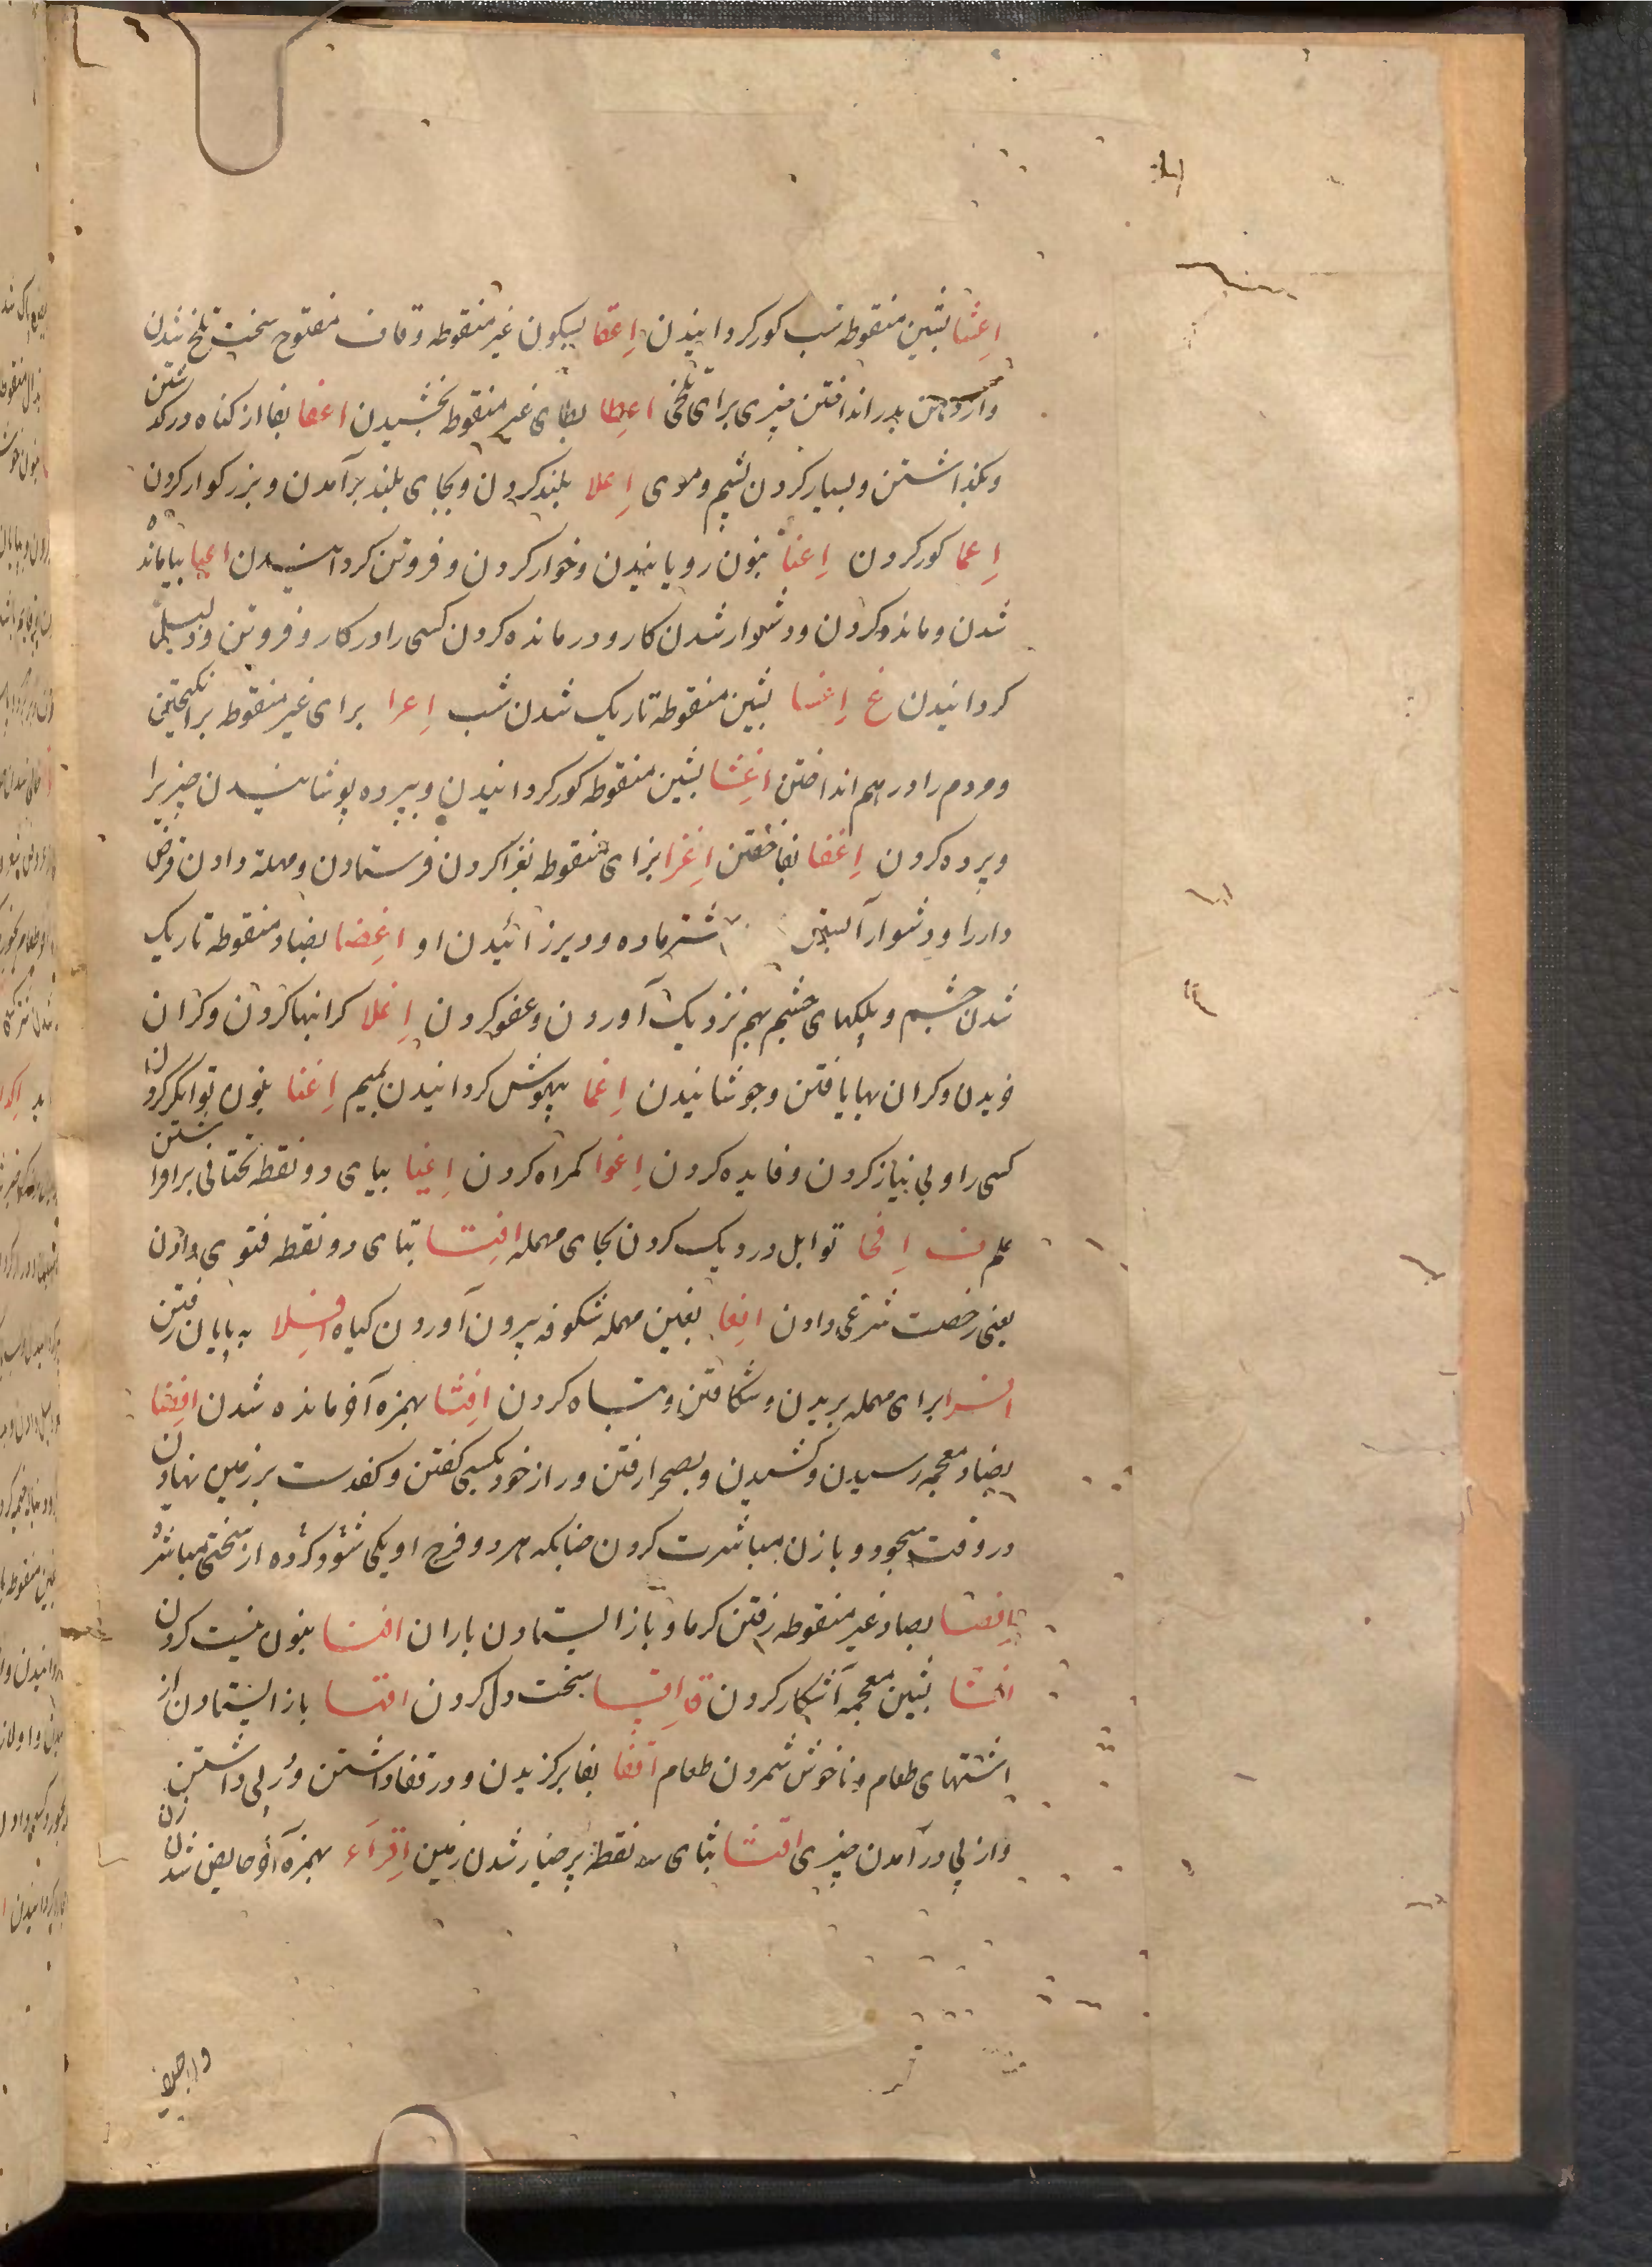 اِعشا بشین منقوطه شب کور کردانیدن اِعقا بسکون غیر منقوطه و قاف مفتوح سخت تلخ شدن
و از دهن بدر انداختن چیزی برای تلخی اعطا بطای غیر منقوطه بخشیدن اعفا بفا از کناه درکذشتن
و بکذاشتن و بسیار کردن پشم و موی اِعلا بلند کردن و بجای بلند برآمدن و بزرکوار کردن
اِعما کور کردن اِعنا بنون رویانیدن و خوار کردن و فروتن کردانیدن اعیا بیا مانده
شدن و مانده کردن و دشوار شدن کار و درمانده کردن کسی را در کار و فروتن و ذلیل
کردانیدن غ اِغسا بشین منقوطه تاریک شدن شب اِغرا برای غیر منقوطه برانکیختن
و مردم را در هم انداختن اغشا بشین منقوطه کور کردانیدن و بپرده پوشانیدن چیزیرا
و پرده کردن اِغفا بفا خفتن اِغزا بزای منقوطه بغزا کردن فرستادن و مهلة دادن قرض
دار را و دشوار آبستن شتر ماده و دیر زائیدن او اغضا بضاد منقوطه تاریک
شدن چشم و پلکهای چشم بهم نزدیک آوردن و عفو کردن اِغلا کرانبها کردن و کران
خریدن و کران بها یافتن و جوشانیدن اِغما بیهوش کردانیدن بمیم اِغنا بنون توانکر کردن
کسی را و بی نیاز کردن و فایده کردن اِغوا کمراه کردن اِغیا بیای دو نقطه تحتانی برافراشتن
علم ف اِفحا توابل در دیک کردن بحای مهمله افتا بتای دو نقطه فتوی دادن
یعنی رخصت شرعی دادن افعا بعین مهمله شکوفه بیرون آوردن کیاه افلا به بیابان رفتن
افرا برای مهمله بریدن و شکافتن و تباه کردن افثا بهمزه آخر مانده شدن افضا
بضاد معجمه رسیدن و کشیدن و بصحرا رفتن و راز خود بکسی کفتن و کف دست بر زمین نهادن
در وقت سجود و با زن مباشرت کردن چنانکه هر دو فرج او یکی شود و کرده از سختی مباشرة
افصا بصاد غیر منقوطه رفتن کرما و باز ایستادن باران افنا بنون نیست کردن
افشا بشین معجمه آشکار کردن ق اِقسا سخت دل کردن اقها باز ایستادن از
اشتهای طعام و ناخوش شمردن طعام اقفا بفا برکزیدن و در قفا داشتن و در پی داشتن
و از پی درآمدن چیزی اقثا بثای سه نقطه پر خیار شدن زمین اِقرآء بهمزه آخر حایض شدن زن